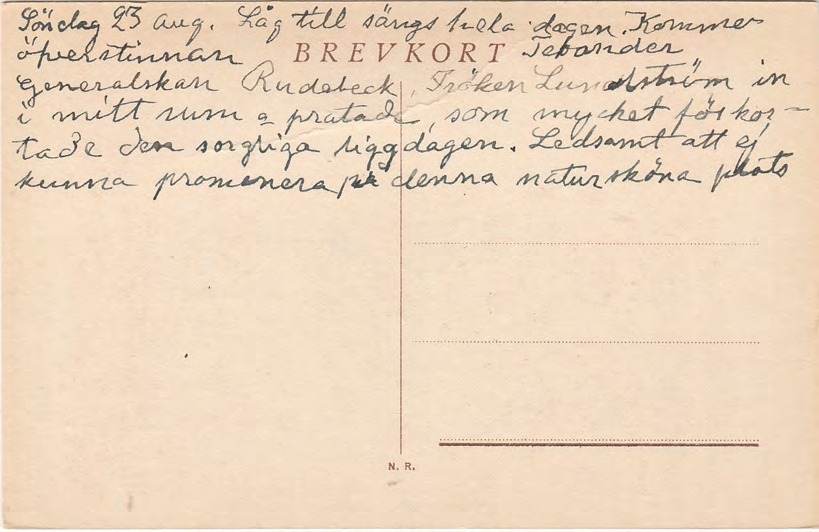 Söndag 23 Aug. Låg till sängs hela dagen. Kommer
öfverstinnan BREVKORT Tebander
Generalskan Rudebeck, Fröken Lundström in
i mitt rum o pratade, som mycket förkor-
tade den sorgliga liggdagen. Ledsamt att ej
kunna promenera på denna natursköna plats
N. R.